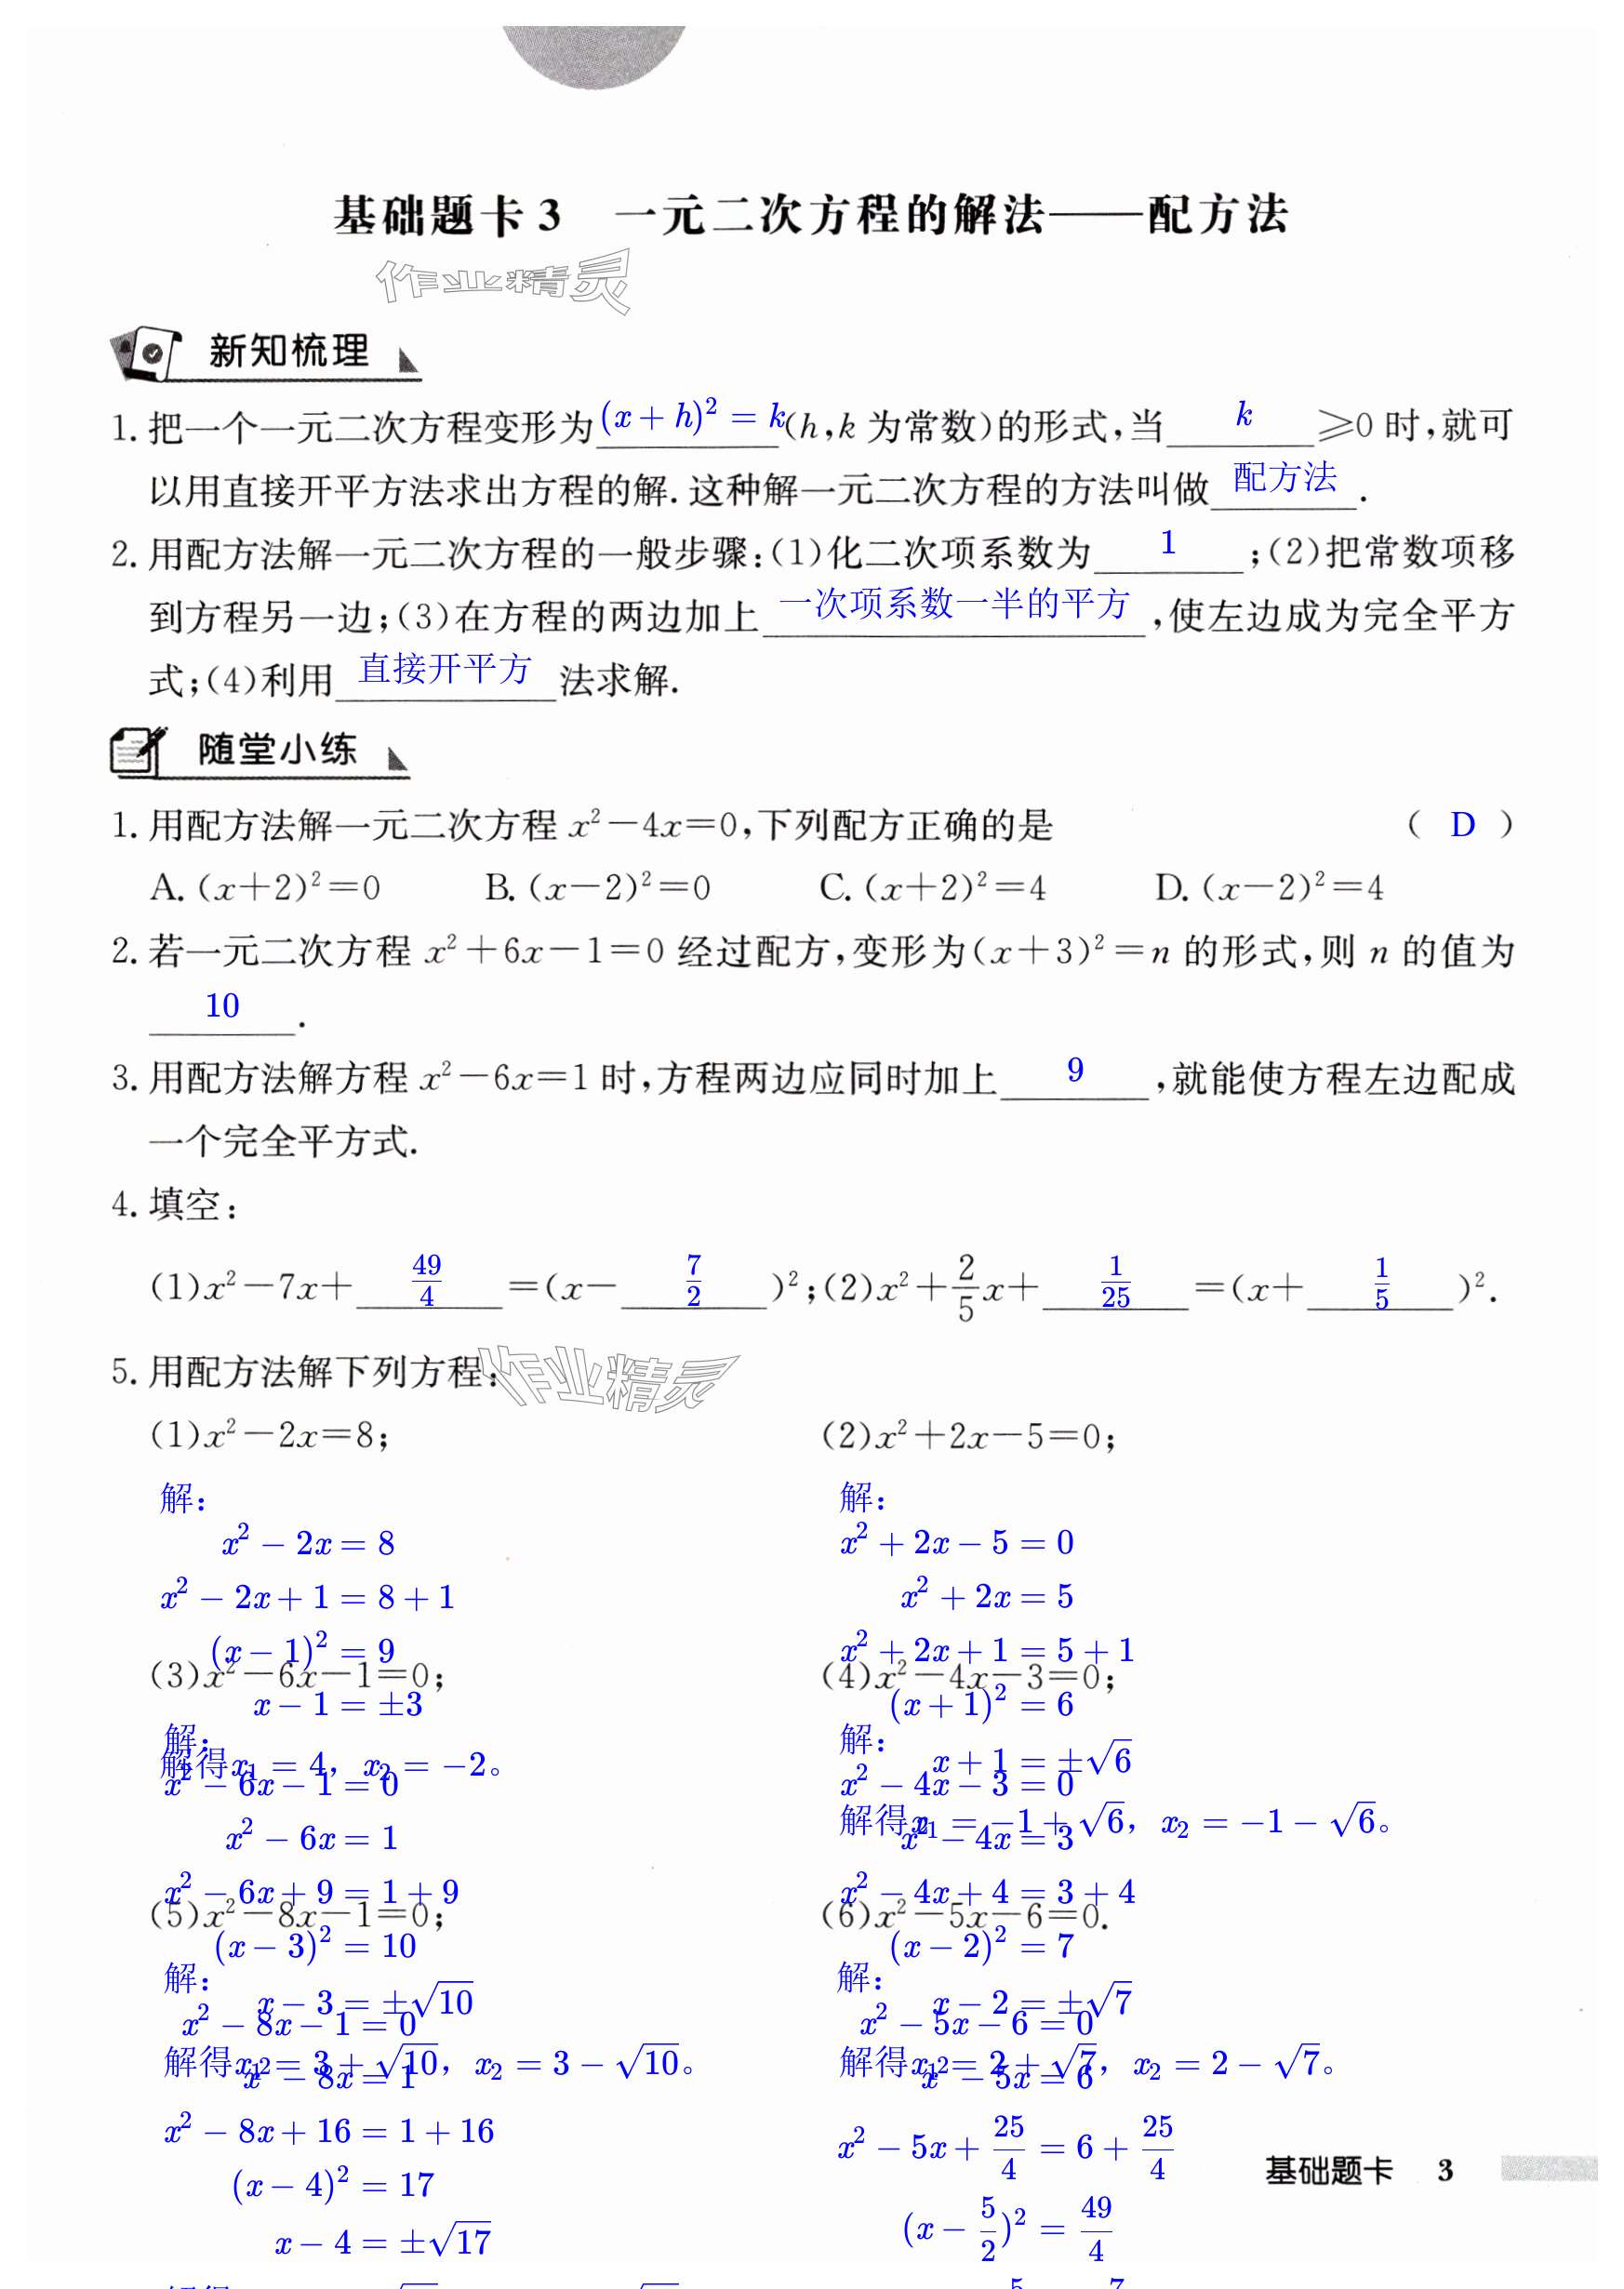 基础题卡3 一元二次方程的解法——配方法
作业精灵
新知梳理
1. 把一个一元二次方程变形为(x+h)²=k(h,k为常数)的形式,当 k ≥0时,就可
以用直接开平方法求出方程的解.这种解一元二次方程的方法叫做 配方法 .
2. 用配方法解一元二次方程的一般步骤:(1)化二次项系数为 1 ;(2)把常数项移
到方程另一边;(3)在方程的两边加上 一次项系数一半的平方 ,使左边成为完全平方
式;(4)利用 直接开平方 法求解.
随堂小练
1. 用配方法解一元二次方程x²-4x=0,下列配方正确的是 ( D )
A. (x+2)²=0 B. (x-2)²=0 C. (x+2)²=4 D. (x-2)²=4
2. 若一元二次方程x²+6x-1=0经过配方,变形为(x+3)²=n的形式,则n的值为
10 .
3. 用配方法解方程x²-6x=1时,方程两边应同时加上 9 ,就能使方程左边配成
一个完全平方式.
4. 填空:
(1)x²-7x+ 49/4 =(x- 7/2 )²;(2)x²+2/5x+ 1/25 =(x+ 1/5 )².
5. 用配方法解下列方程:
作业精灵
(1)x²-2x=8; (2)x²+2x-5=0;
解: 解:
x²-2x=8 x²+2x-5=0
x²-2x+1=8+1 x²+2x=5
(x-1)²=9 x²+2x+1=5+1
(3)x²-6x-1=0; (4)x²-4x-3=0;
x-1=±3 (x+1)²=6
解: 解:
x+1=±√6
解得x₁=4，x₂=-2。
x²-6x-1=0 x²-4x-3=0
解得x₁=-1+√6，x₂=-1-√6。
x²-6x=1 x²-4x=3
x²-6x+9=1+9 x²-4x+4=3+4
(5)x²-8x-1=0; (6)x²-5x-6=0.
(x-3)²=10 (x-2)²=7
解: 解:
x-3=±√10 x-2=±√7
x²-8x-1=0 x²-5x-6=0
解得x₁=3+√10，x₂=3-√10。 解得x₁=2+√7，x₂=2-√7。
x²-8x=1 x²-5x=6
x²-8x+16=1+16 x²-5x+25/4=6+25/4
基础题卡 3
(x-4)²=17 (x-5/2)²=49/4
x-4=±√17